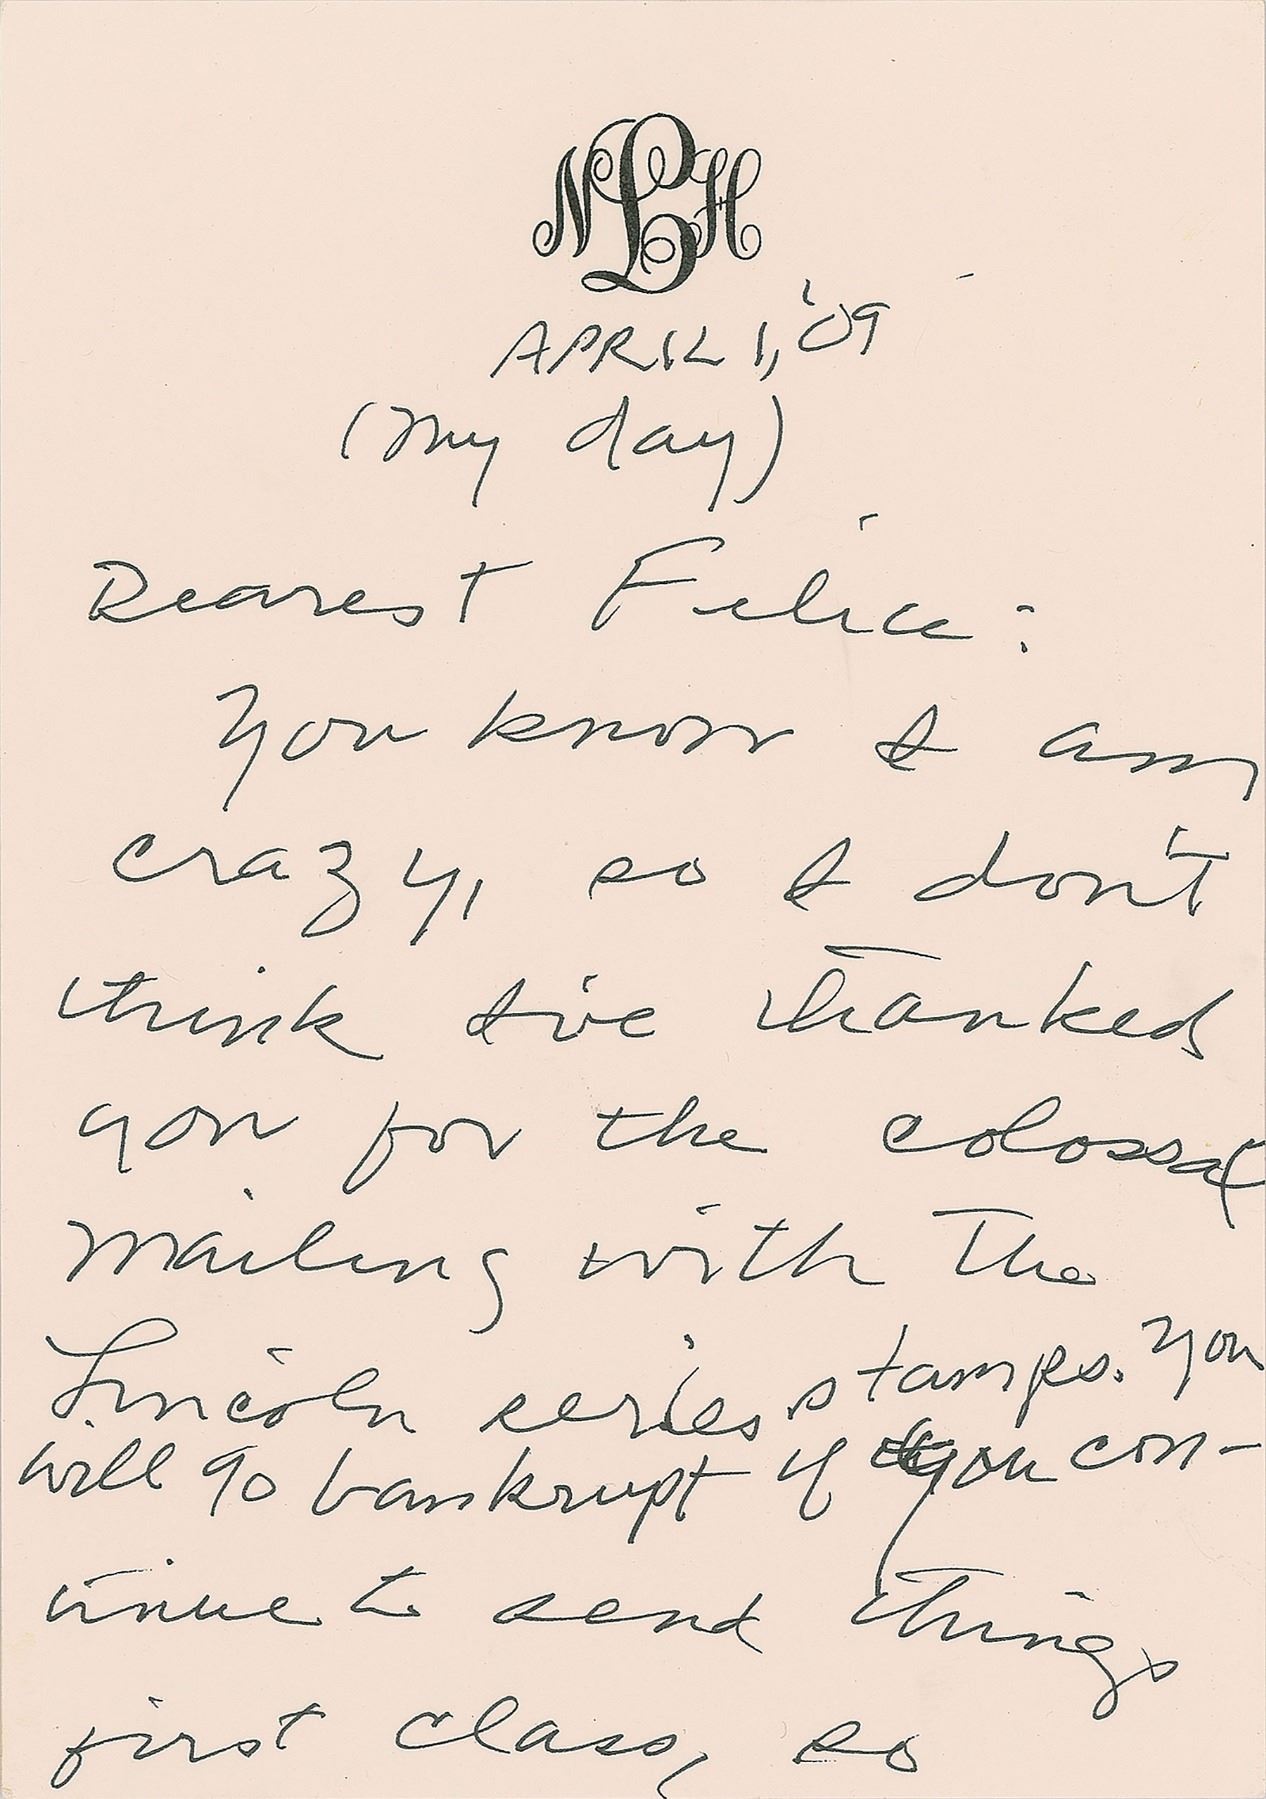 NLH
APRIL 1, '09
(My day)
Dearest Felice:
You know I am
crazy, so I don't
think I've thanked
you for the colossal
mailing with the
Lincoln series stamps. You
will go bankrupt if you con-
tinue to send things
first class, so